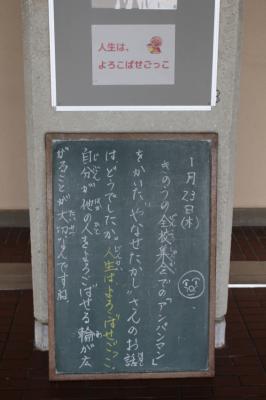 人生は、
よろこばせごっこ
1月23日(木)
きのうの全校集会での「アンパンマン」
をかいた、やなせたかしさんのお話
はどうでしたか。人生はよろこばせごっこ。
自分が他の人をよろこばせる輪が広
がることが大切なんですね